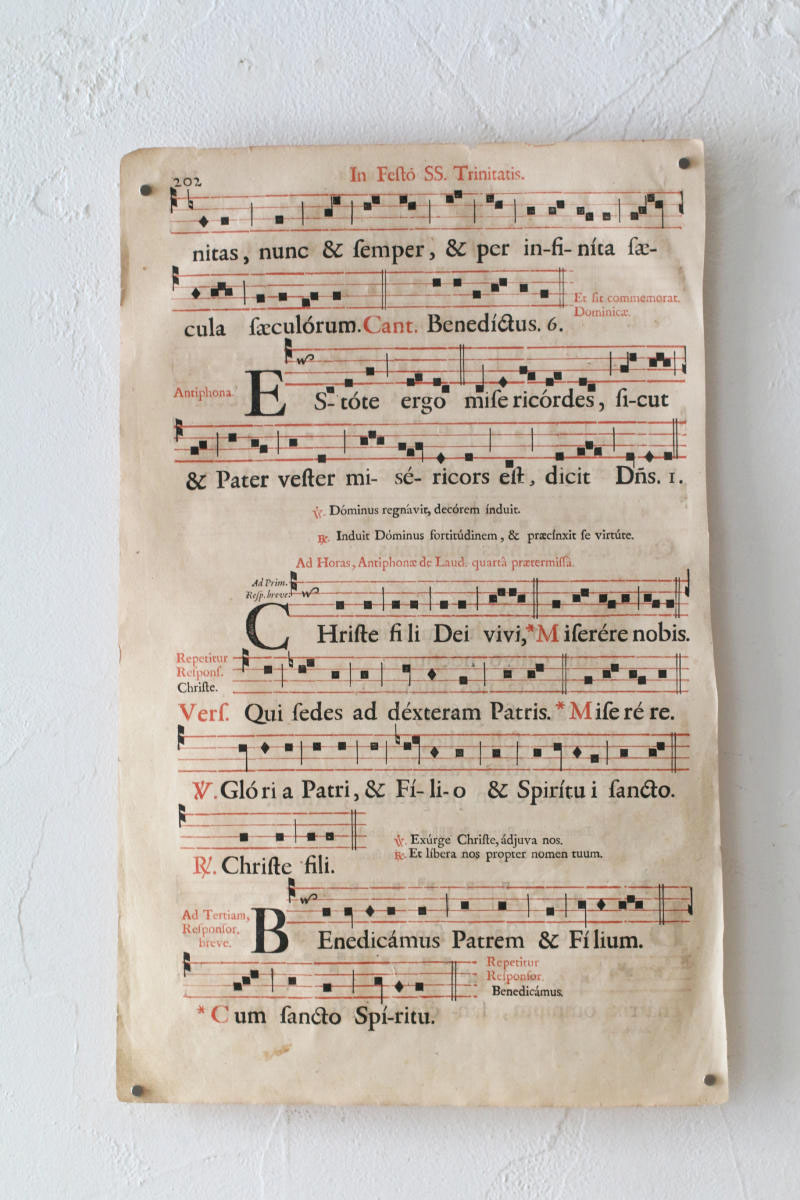 202
In Feſtó SS. Trinitatis.
nitas, nunc & ſemper, & per in-fi-níta ſæ-
cula ſæculórum. Cant. Benedíctus. 6.
Et fit commemorat.
Dominicæ.
Antiphona.
ES-tóte ergo miſericórdes, ſi-cut
& Pater veſter mi-sé-ricors eſt, dicit Dñs. 1.
℣. Dóminus regnávit, decórem índuit.
℟. Induit Dóminus fortitúdinem, & præcínxit ſe virtúte.
Ad Horas, Antiphonæ de Laud. quartâ prætermiſſâ.
Ad Prim.
Reſp. breve.
CHriſte fili Dei vivi,* Miſerére nobis.
Repetitur
Reſponſ.
Chriſte.
Verſ. Qui ſedes ad déxteram Patris. * Miſeré re.
℣. Glória Patri, & Fí-li-o & Spirítui ſancto.
℟. Chriſte fili.
℣. Exúrge Chriſte, ádjuva nos.
℟. Et líbera nos propter nomen tuum.
Ad Tertiam,
Reſponſor.
breve.
BEnedicámus Patrem & Fílium.
* Cum ſancto Spí-ritu.
Repetitur
Reſponſor.
Benedicámus.